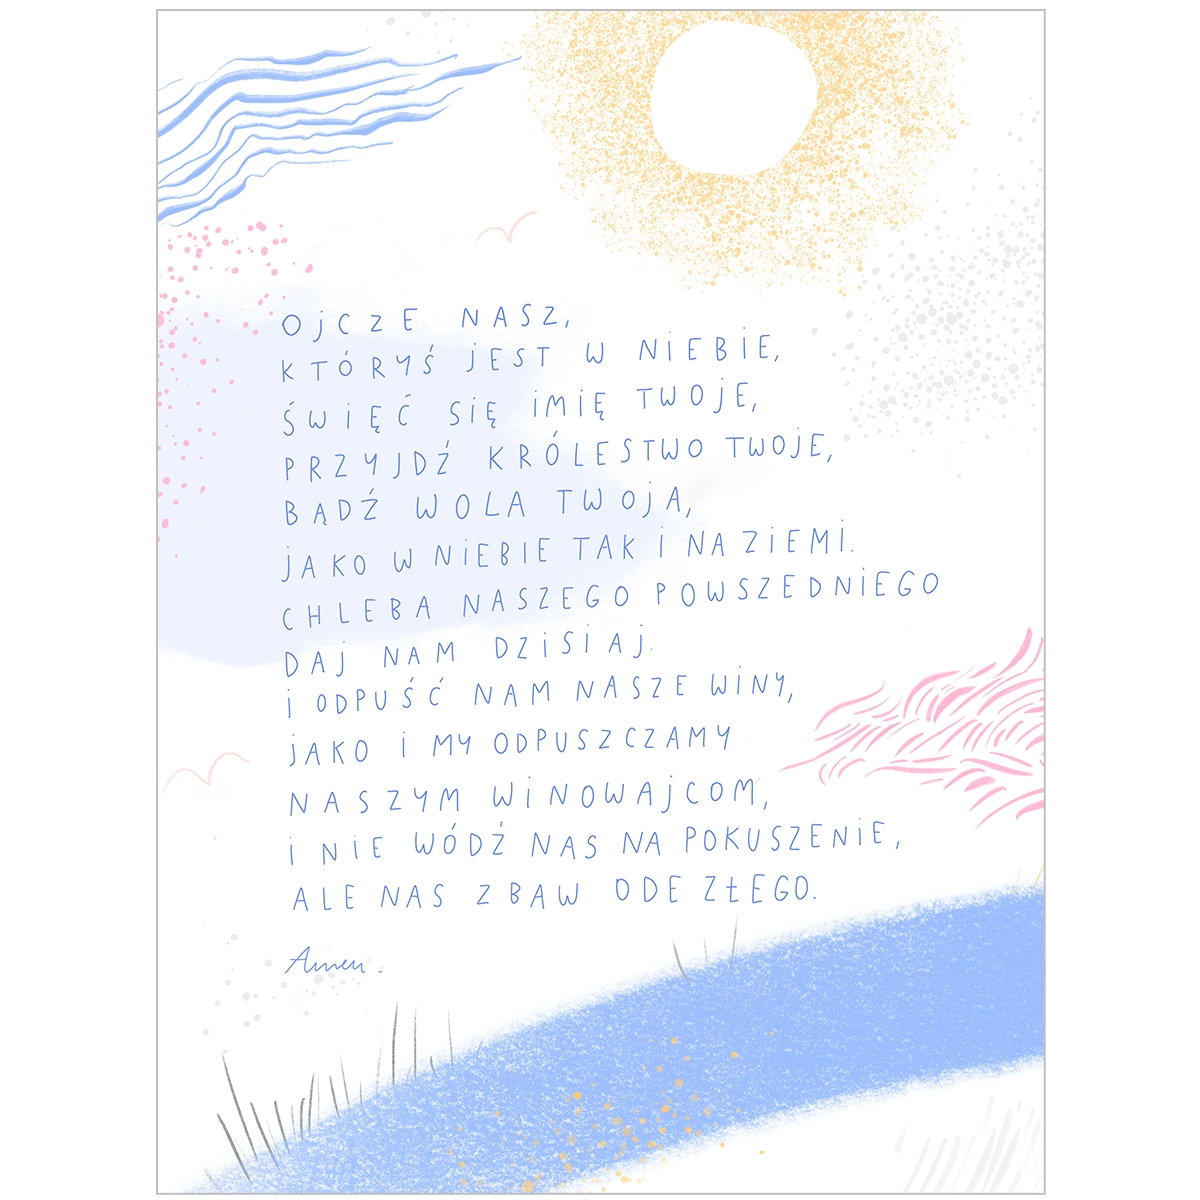 OJCZE NASZ,
KTÓRYŚ JEST W NIEBIE,
ŚWIĘĆ SIĘ IMIĘ TWOJE,
PRZYJDŹ KRÓLESTWO TWOJE,
BĄDŹ WOLA TWOJA,
JAKO W NIEBIE TAK I NA ZIEMI.
CHLEBA NASZEGO POWSZEDNIEGO
DAJ NAM DZISIAJ.
I ODPUŚĆ NAM NASZE WINY,
JAKO I MY ODPUSZCZAMY
NASZYM WINOWAJCOM,
I NIE WÓDŹ NAS NA POKUSZENIE,
ALE NAS ZBAW ODE ZŁEGO.
Amen.